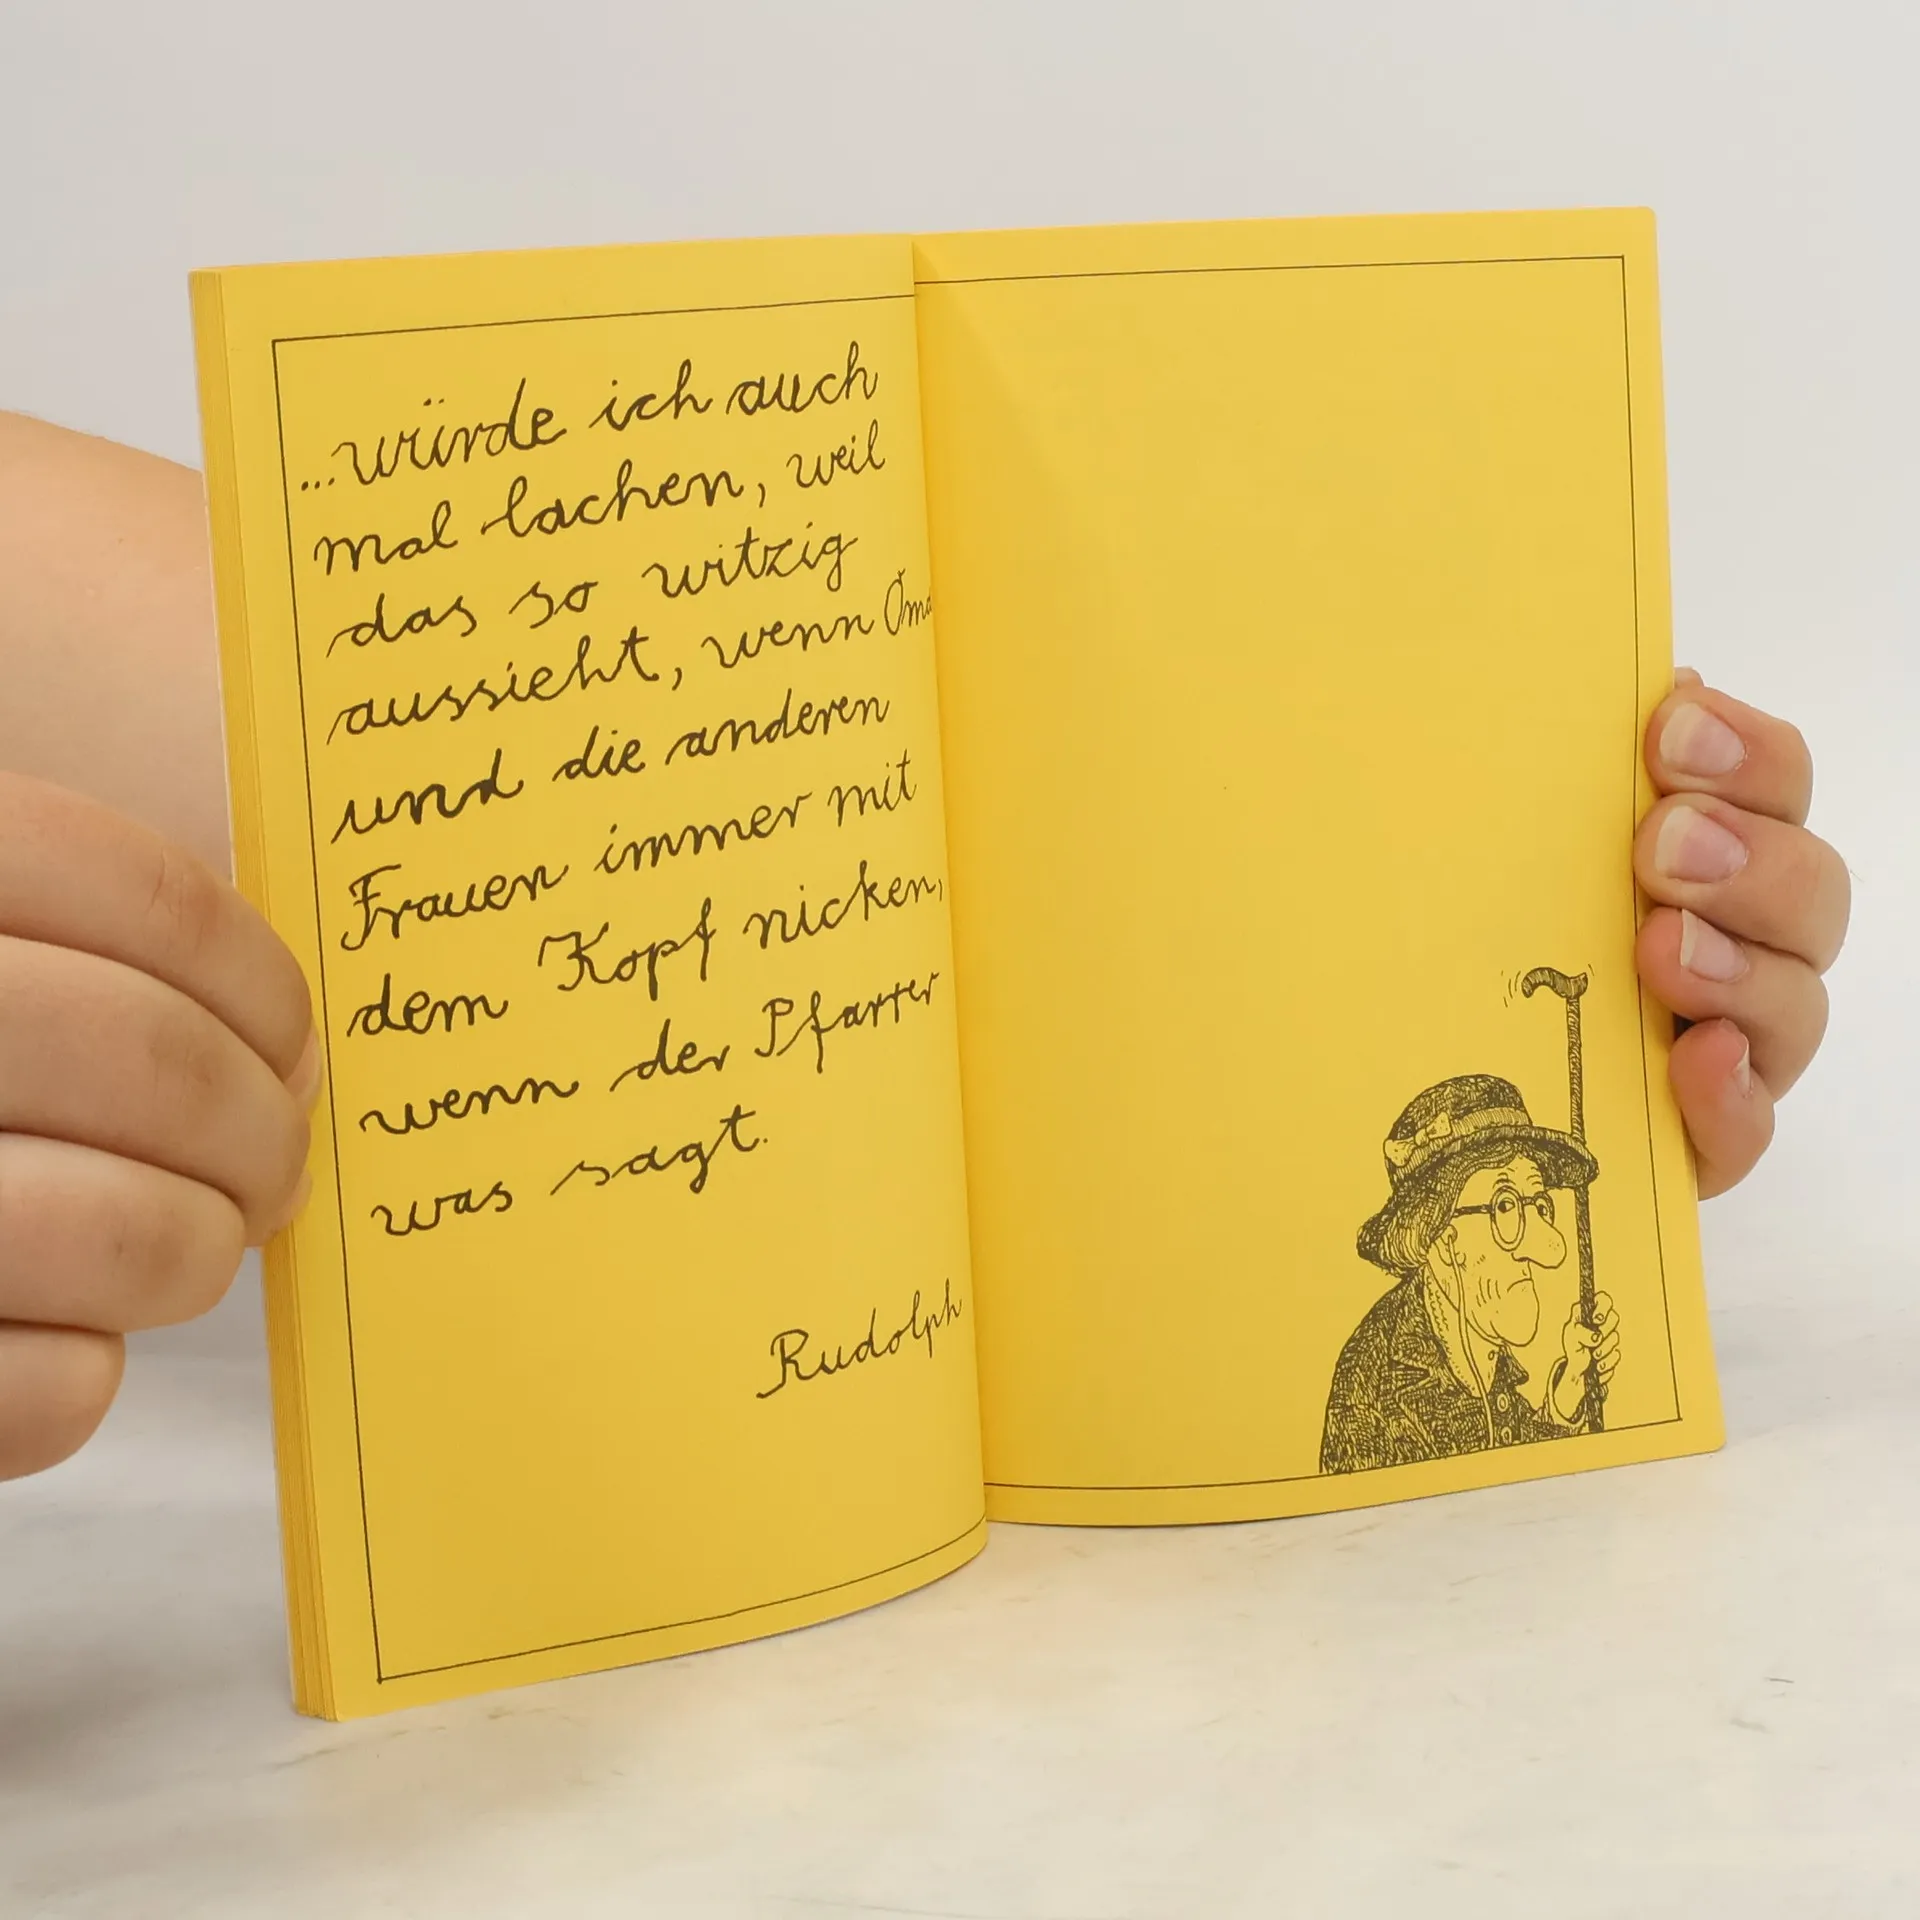 ...würde ich auch
mal lachen, weil
das so witzig
aussieht, wenn Oma
und die anderen
Frauen immer mit
dem Kopf nicken,
wenn der Pfarrer
was sagt.
Rudolph